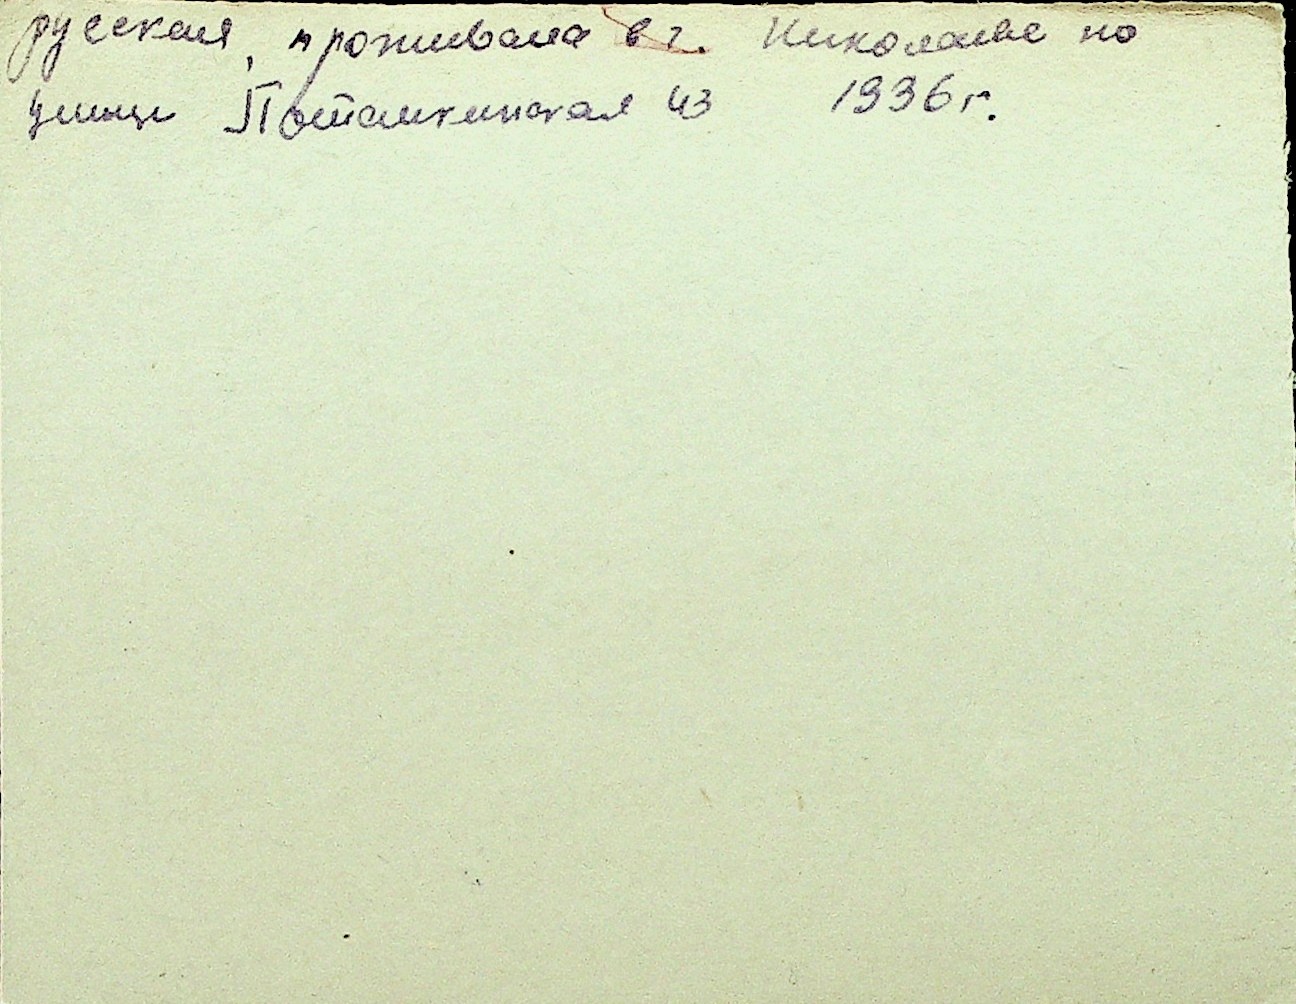 русская, проживала в г. Николаеве по
улице Потёмкинская 43 1936 г.